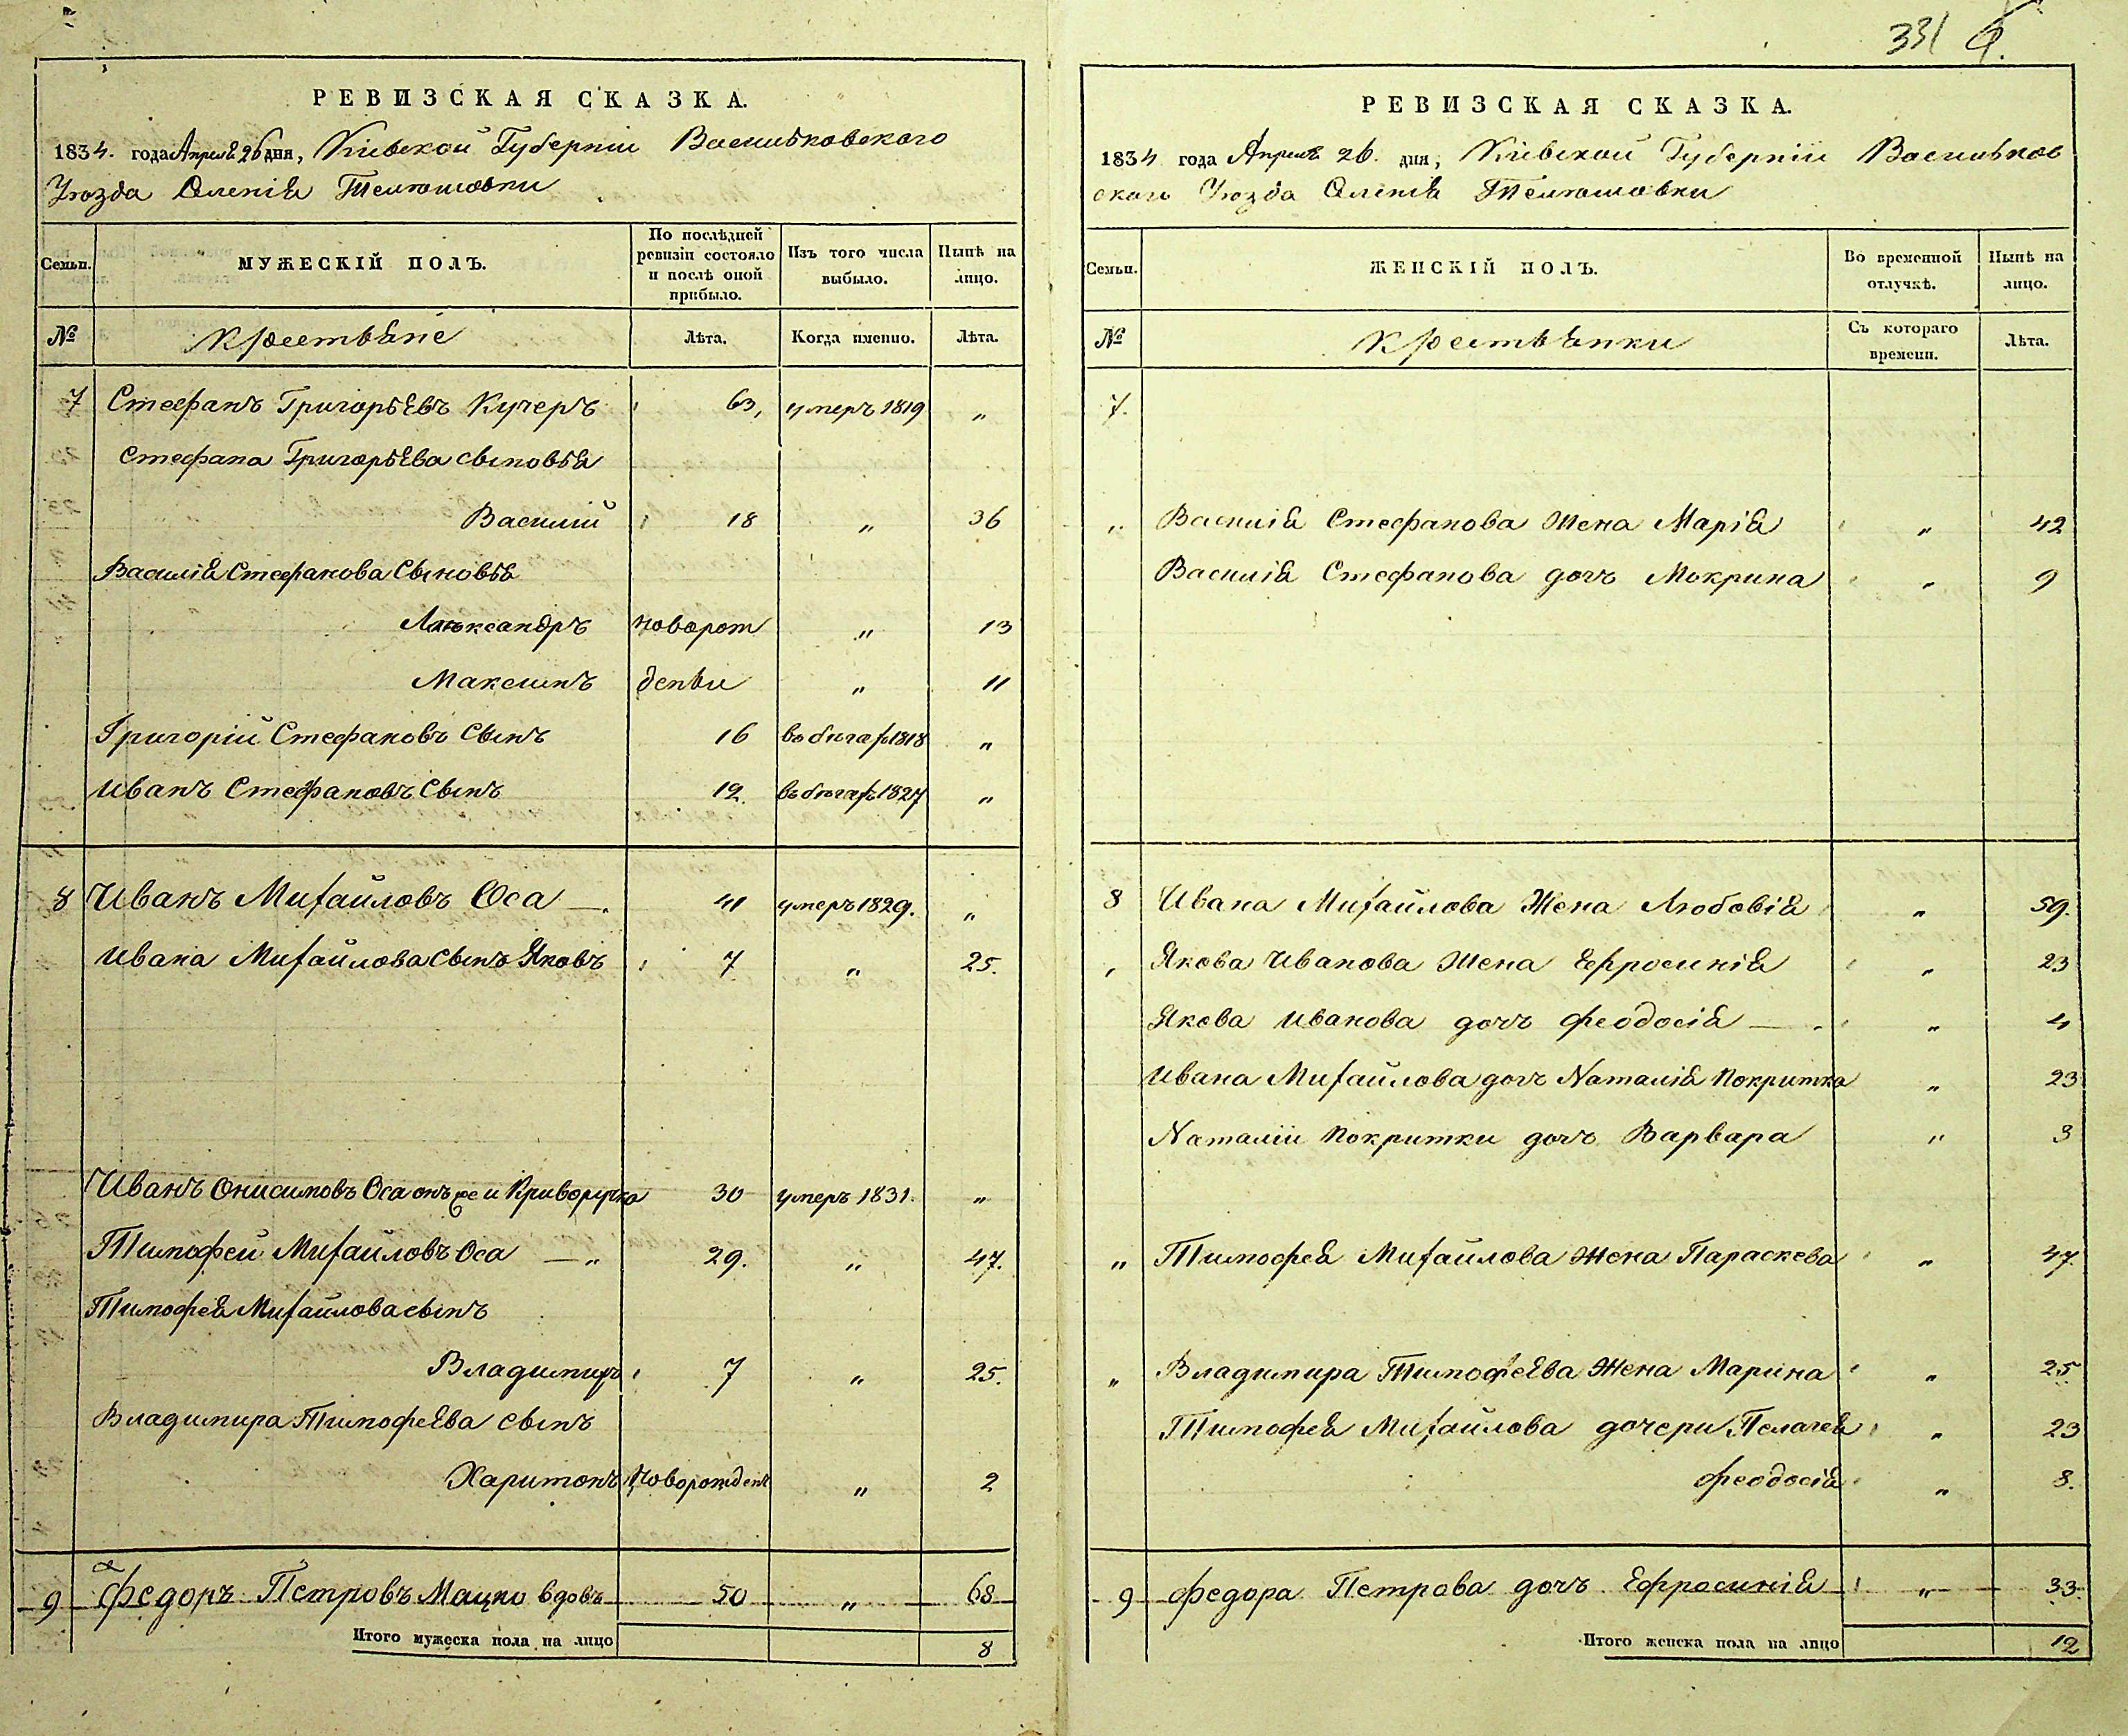 331 
РЕВИЗСКАЯ СКАЗКА.
1834. года Апреля 26 дня, Кіевской Губерніи Васильковского
Уюзда Селенія Телюшовки
Семьи.
МУЖЕСКІЙ ПОЛЪ.
По послѣдней ревизіи состояло и послѣ оной прибыло.
Изъ того числа выбыло.
Нынѣ на лицо.
№ Крестьяне Лѣта. Когда именно. Лѣта.
7 Стефанъ Григорьевъ Кучеръ 63, умеръ 1819 „
Стефана Григорьева сыновья
Василий 18 „ 36
Василія Стефанова Сыновья
Александръ новорож „ 13
Максимъ деныи „ 11
Григорій Стефановъ Сынъ 16 въ бюгах 1818 „
Иванъ Стефановъ Сынъ 12. въ бюгах 1827 „
8 Иванъ Михайловъ Оса —. 41 умеръ 1829. „
Ивана Михайлова сынъ Яковъ 7 „ 25.
Иванъ Онисимовъ Оса онъ же и Криворучко 30 умеръ 1831. „
Тимофей Михайловъ Оса — „ 29. „ 47.
Тимофея Михайлова сынъ
Владимиръ 7 „ 25.
Владимира Тимофеева сынъ
Харитонъ Новорожден „ 2
9 Федоръ Петровъ Мацко вдовъ 50 „ 68
Итого мужеска пола на лицо 8
РЕВИЗСКАЯ СКАЗКА.
1834 года Апреля 26. дня, Кіевской Губерніи Васильков
ского Уюзда Селенія Телюшовки
Семьи.
ЖЕНСКІЙ ПОЛЪ.
Во временной отлучкѣ.
Нынѣ на лицо.
№ Крестьянки Съ котораго времени. Лѣта.
7.
„ Василія Стефанова Жена Марія „ 42
Василія Стефанова дочъ Мокрина „ 9
8 Ивана Михайлова Жена Любовія „ 59.
„ Якова Иванова Жена Ефросинія „ 23
Якова Иванова дочъ Феодосія — „ 4
Ивана Михайлова дочъ Наталія Покритка „ 23
Наталіи Покритки дочъ Варвара „ 3
„ Тимофея Михайлова Жена Параскева „ 47.
„ Владимира Тимофеева Жена Марина „ 25
Тимофея Михайлова дочери Пелагея „ 23
Феодосія „ 8.
9 Федора Петрова дочъ Ефросинія „ 33.
Итого женска пола на лицо 12